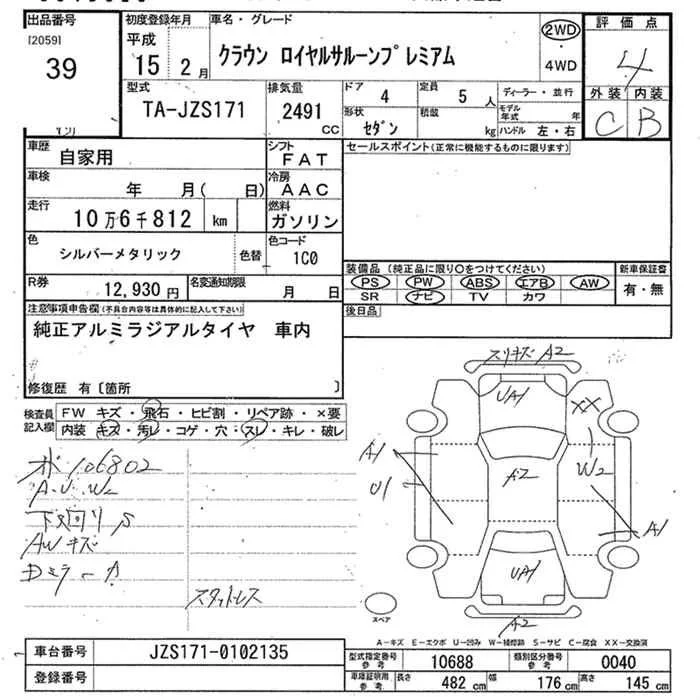 出品番号 初度登録年月 車名・グレード 評価点
[2059] 平成
39 15 2月 クラウン ロイヤルサルーンプレミアム 2WD ・ 4WD 4
型式 排気量 ドア 4 定員 5 人 ディーラー・並行 外装 内装
TA-JZS171 2491 cc 形状 セダン 積載 kg モデル年式 年 ハンドル 左・右 C B
車歴 自家用 シフト FAT セールスポイント(正常に機能するものに限ります)
車検 年 月( 日) 冷房 AAC
走行 10万6千812 km 燃料 ガソリン
色 シルバーメタリック 色替 色コード 1C0
装備品 (純正品に限り○をつけてください) 新車保証書
R券 12,930円 名変通知期限 月 日 PS PW ABS エアB AW 有・無
SR ナビ TV カワ
注意事項申告欄(不具合内容等は具体的に記入して下さい) 後日品
純正アルミラジアルタイヤ 車内
修復歴 有〔箇所 〕
検査員記入欄 FW キズ・飛石・ヒビ割・リペア跡・×要
内装 キズ・汚レ・コゲ・穴・スレ・キレ・破レ
スリキズ A2
UA1
XX
A1
U1
W2
A2
A1
UA1
A2
106802
A.U.W2
下回りS
AWキズ
Dミラーカ
スタットレス
スペア
A-キズ E-エクボ U-凹み W-補修跡 S-サビ C-腐食 XX-交換済
車台番号 JZS171-0102135 型式指定番号参考 10688 類別区分番号参考 0040
登録番号 車庫証明用参考 長さ 482 cm 幅 176 cm 高さ 145 cm